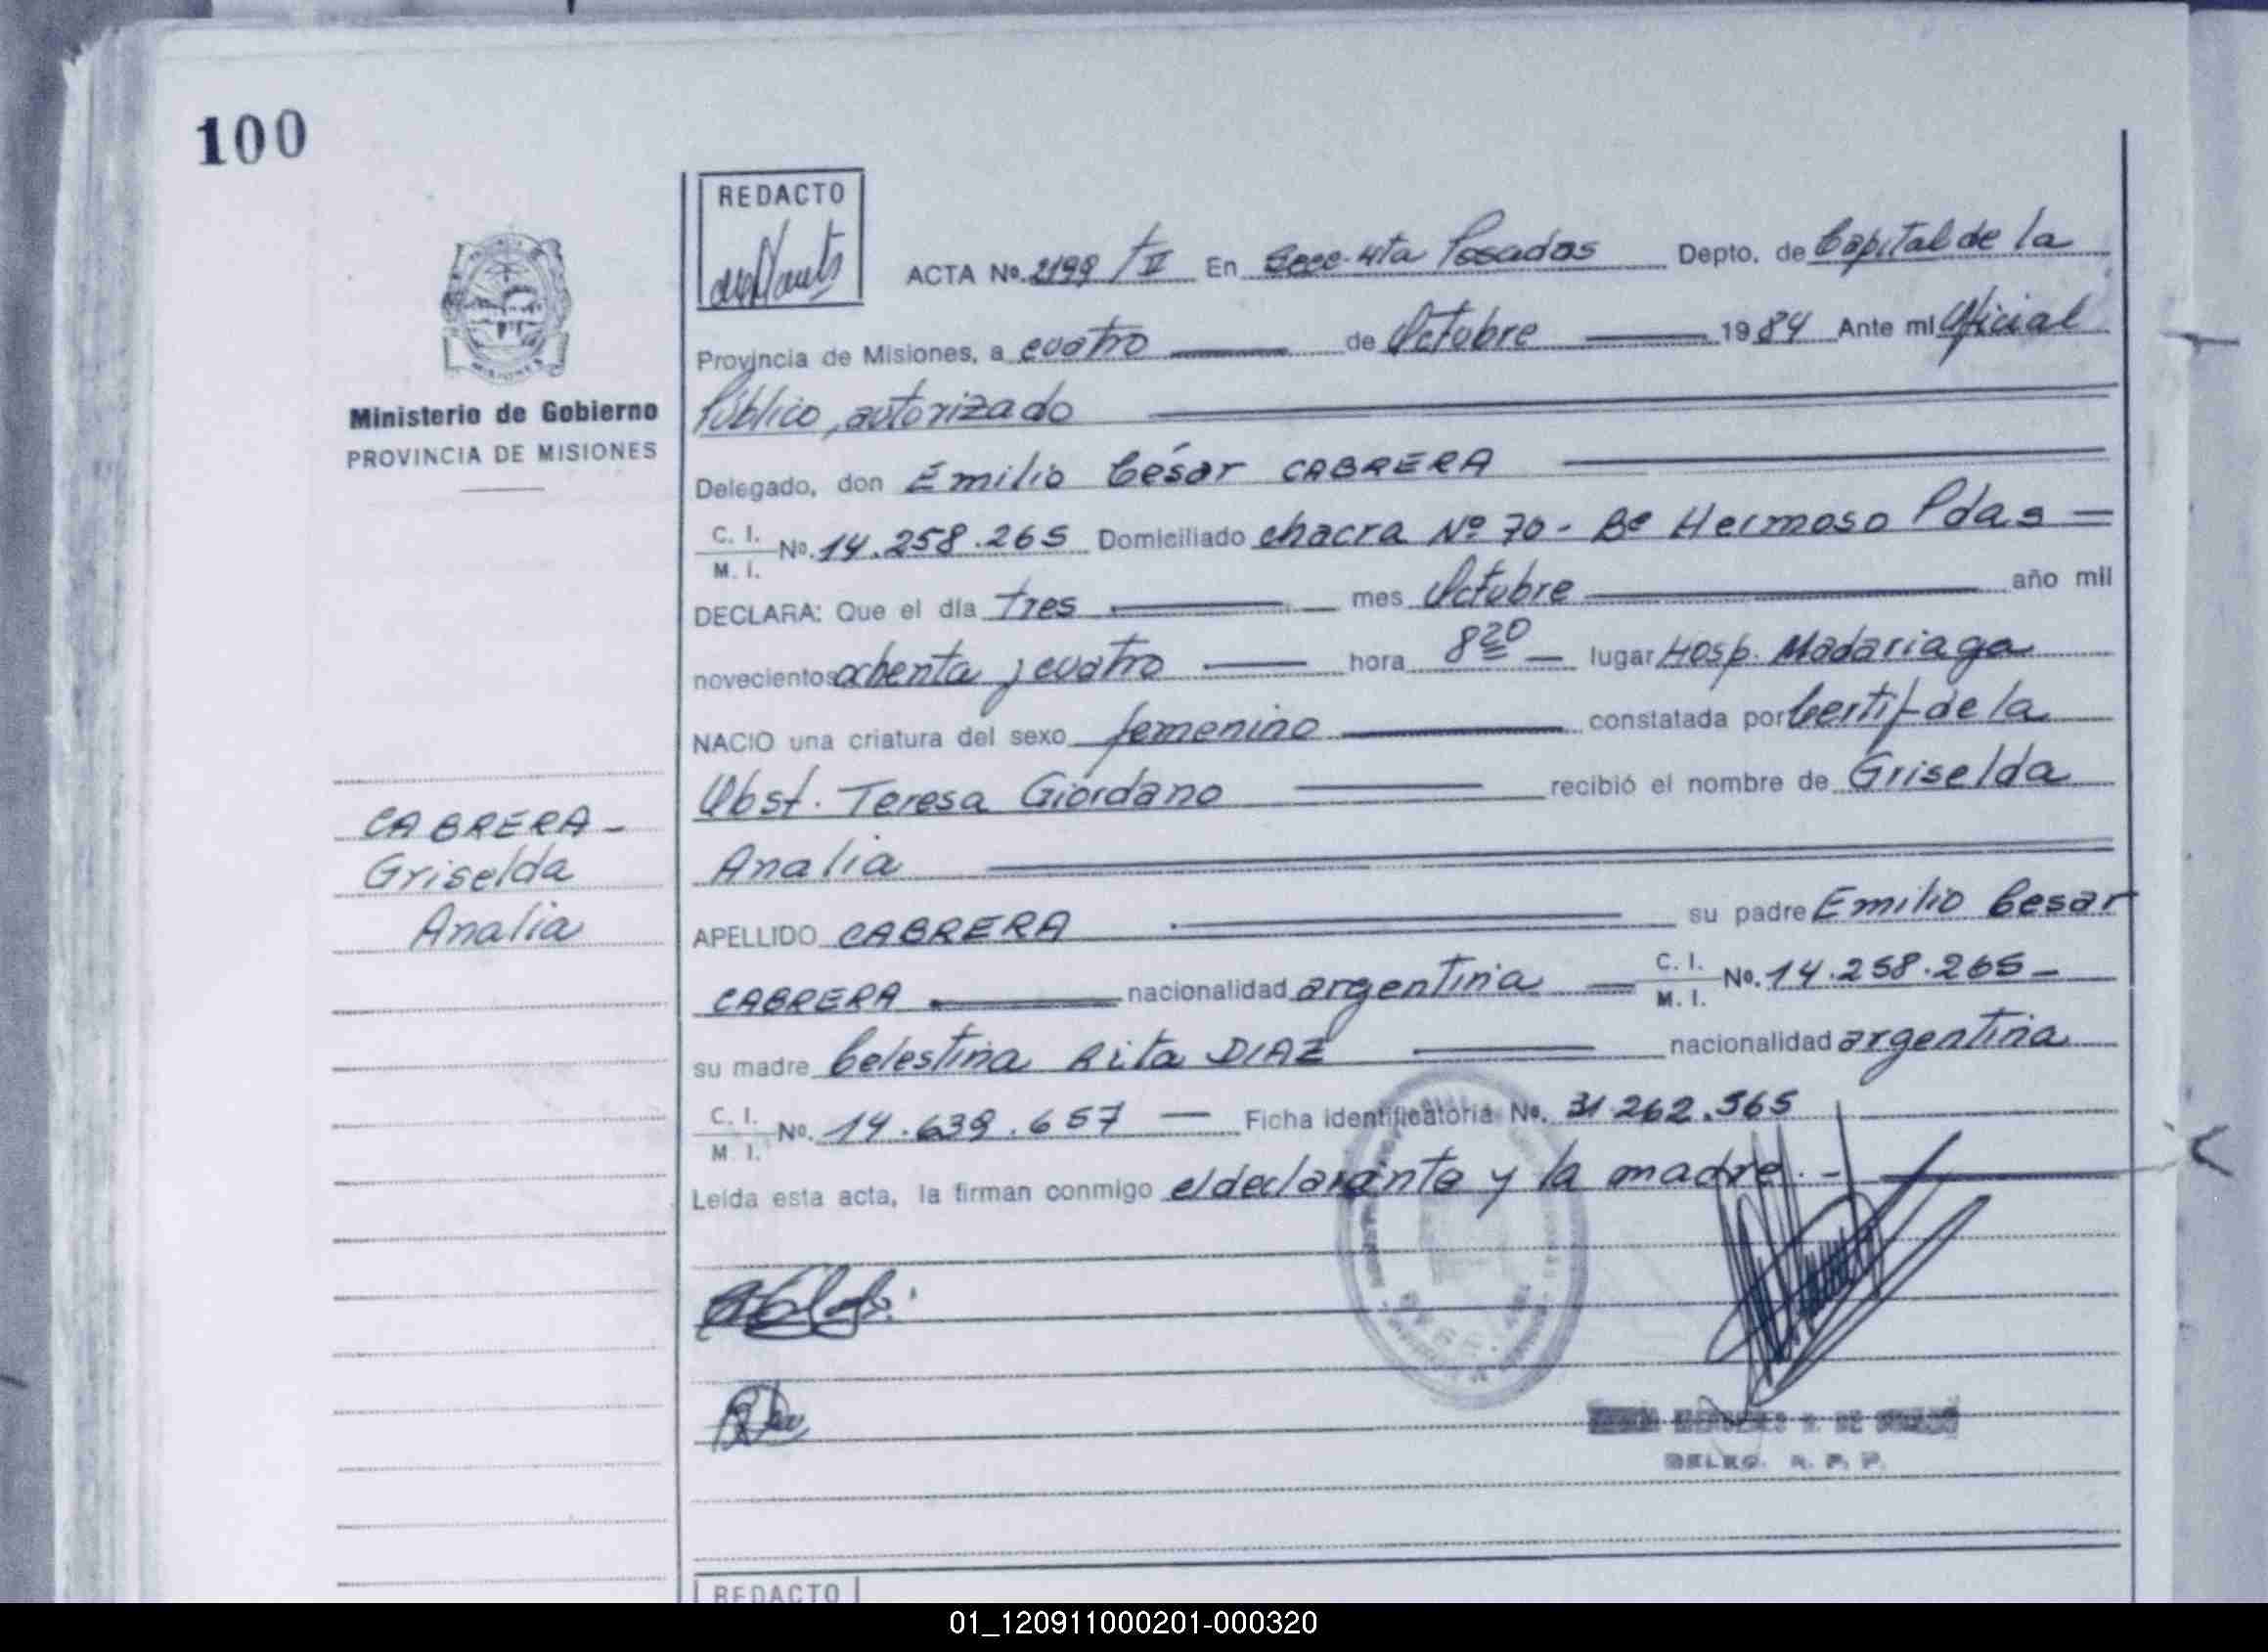 100
REDACTO
ACTA No. 2199/II En Secc. 4ta Posadas Depto. de Capital de la
Provincia de Misiones, a cuatro de Octubre 1984 Ante mi Oficial
Público, autorizado
Ministerio de Gobierno
PROVINCIA DE MISIONES
Delegado, don Emilio César CABRERA
C. I. M. I. No. 14.258.265 Domiciliado chacra Nº 70 - Bº Hermoso Pdas
DECLARA: Que el día tres mes Octubre año mil
novecientos ochenta y cuatro hora 8 20 lugar Hosp. Madariaga
NACIO una criatura del sexo femenino constatada por Certif. de la
Obst. Teresa Giordano recibió el nombre de Griselda
Analia
CABRERA -
Griselda
Analia
APELLIDO CABRERA su padre Emilio Cesar
CABRERA nacionalidad argentina C. I. M. I. No. 14.258.265 -
su madre Celestina Rita DIAZ nacionalidad argentina
C. I. M. I. No. 14.639.657 — Ficha identificatoria No. 31.262.565
Leída esta acta, la firman conmigo el declarante y la madre. -
DE
DELEG. R. P. P.
REDACTO
01_120911000201-000320